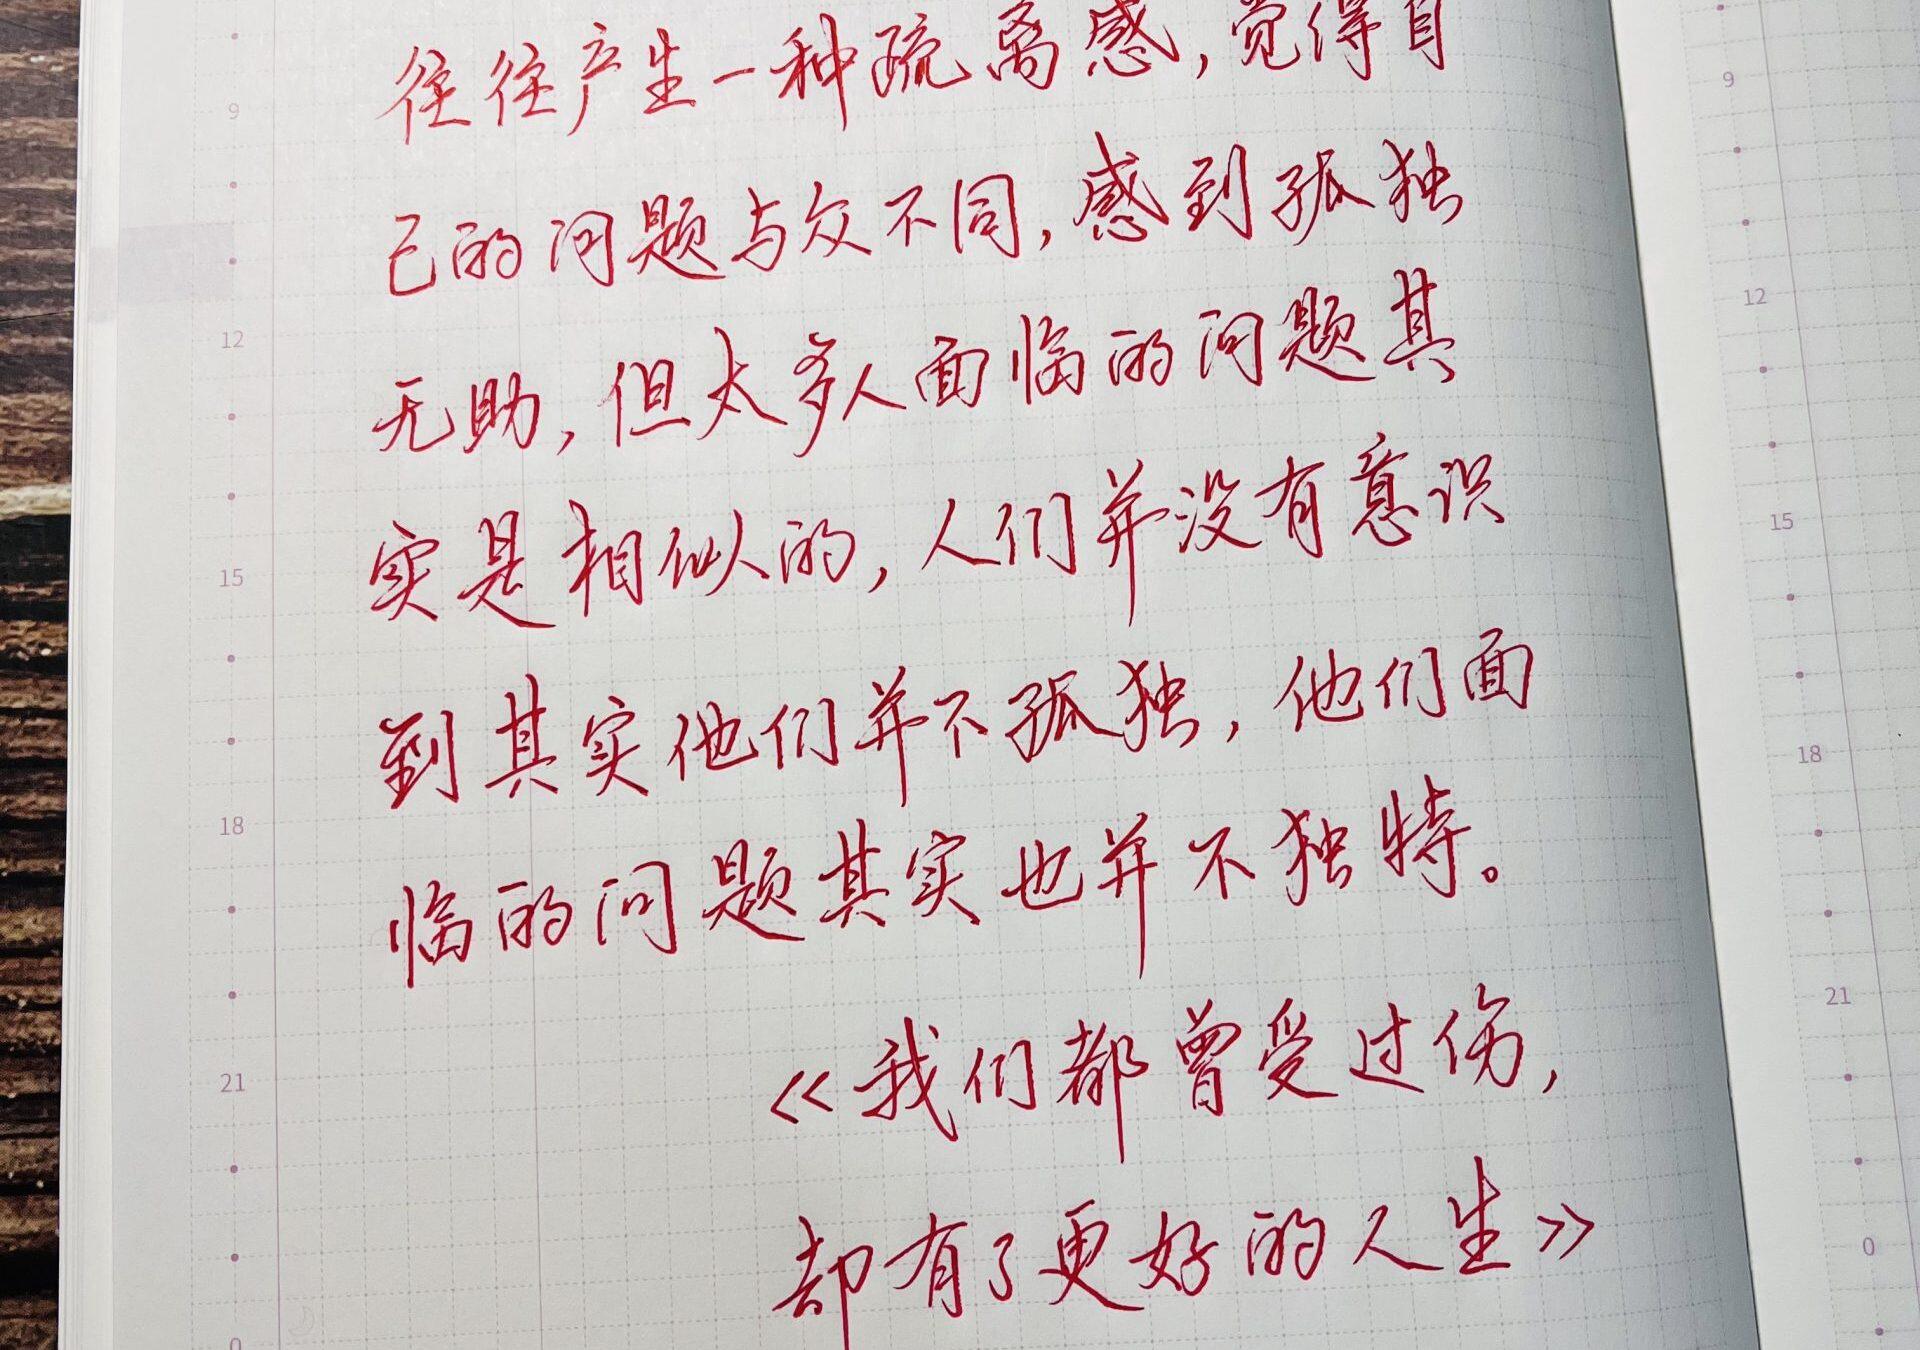 往往产生一种疏离感，觉得自
己的问题与众不同，感到孤独
无助，但太多人面临的问题其
实是相似的，人们并没有意识
到其实他们并不孤独，他们面
临的问题其实也并不独特。
《我们都曾受过伤，
却有了更好的人生》
9
12
15
18
21
0
9
12
15
18
21
0